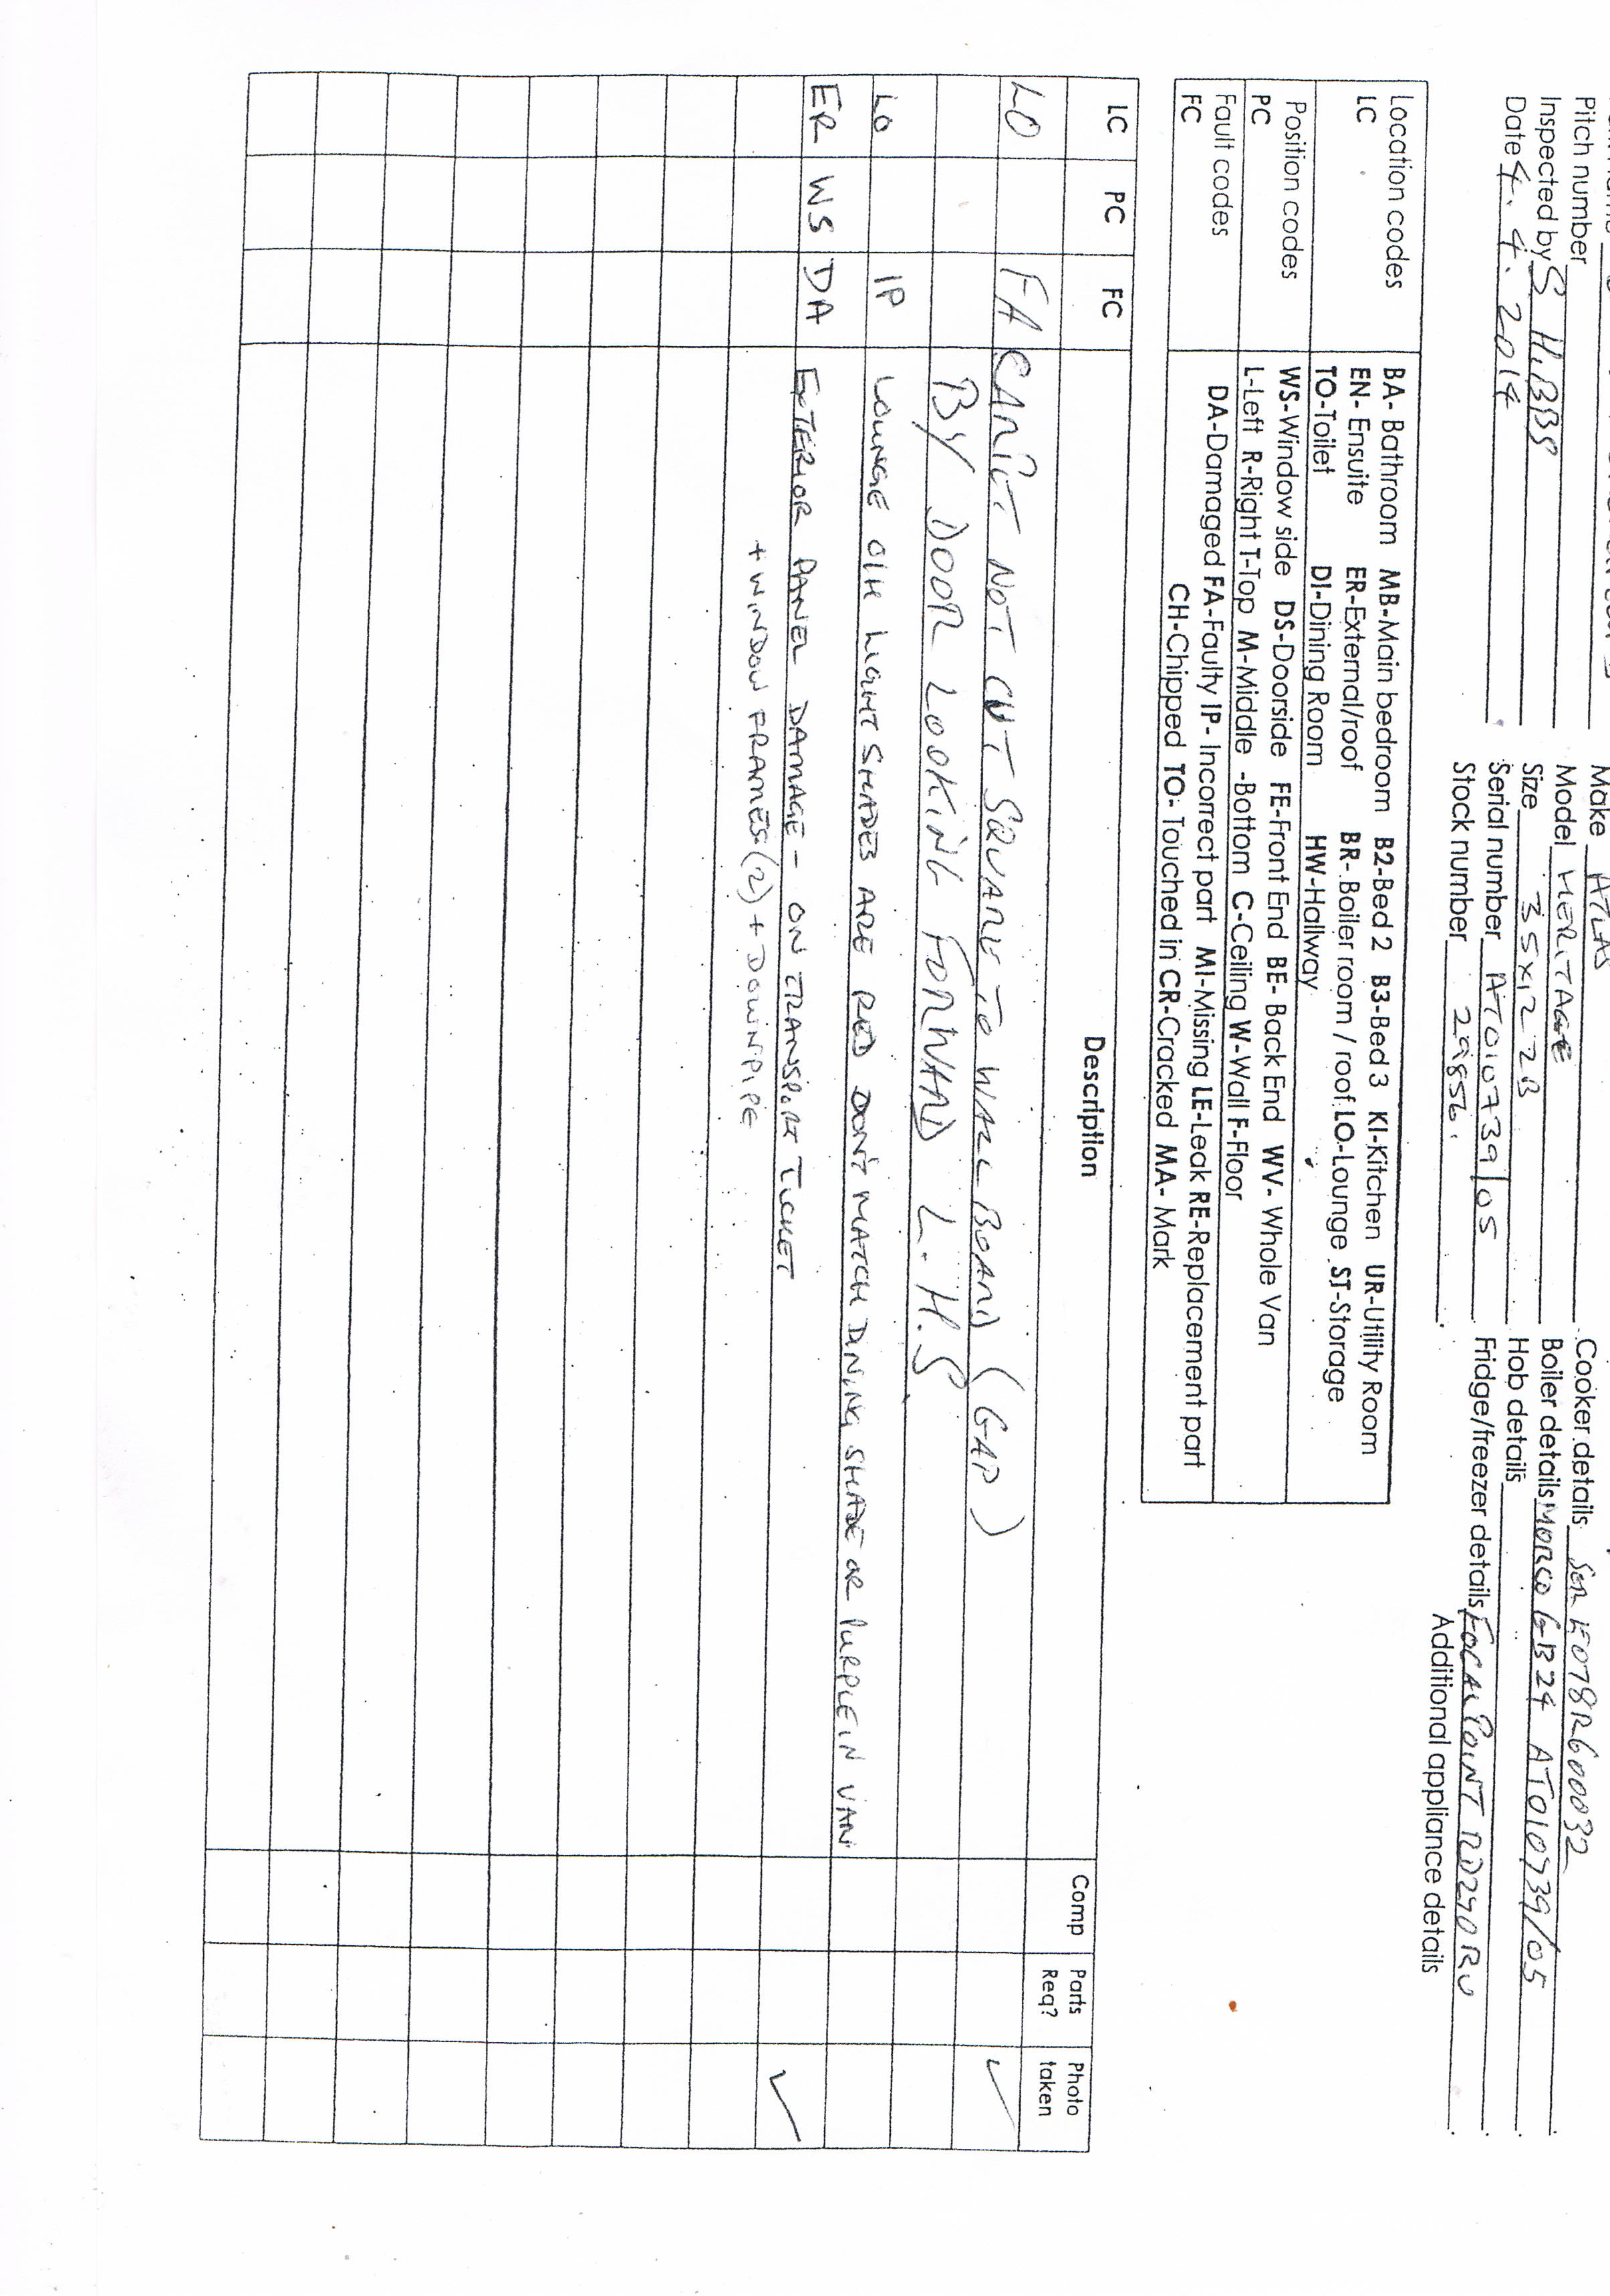 Pitch number
Make ATLAS
Cooker details SER E078R600032
Inspected by S HIBBS
Model HERITAGE
Boiler details MORCO GB24 AT010739/05
Date 4.4.2014
Size 35x12 2B
Hob details
Serial number AT010739/05
Fridge/freezer details FOCAL POINT
Stock number
Additional appliance details
Location codes LC
BA- Bathroom MB-Main bedroom B2-Bed 2 B3-Bed 3 KI-Kitchen UR-Utility Room
EN- Ensuite ER-External/roof BR- Boiler room / roof LO-Lounge ST-Storage
TO-Toilet DI-Dining Room HW-Hallway
Position codes PC
WS-Window side DS-Doorside FE-Front End BE- Back End WV- Whole Van
L-Left R-Right T-Top M-Middle -Bottom C-Ceiling W-Wall F-Floor
Fault codes FC
DA-Damaged FA-Faulty IP- Incorrect part MI-Missing LE-Leak RE-Replacement part
CH-Chipped TO- Touched in CR-Cracked MA- Mark
LC PC FC Description Comp Parts Req? Photo taken
LO FA CARPET NOT CUT SQUARE TO WALL BOARD (GAP) ✓
BY DOOR LOOKING FORWARD L.H.S.
LO IP LOUNGE LIGHT SHADES ARE RED DON'T MATCH DINING SHADE OR PURPLE IN VAN
ER WS DA EXTERIOR PANEL DAMAGE - ON TRANSPORT TICKET ✓
+ WINDOW FRAMES (2) + DOWNPIPE